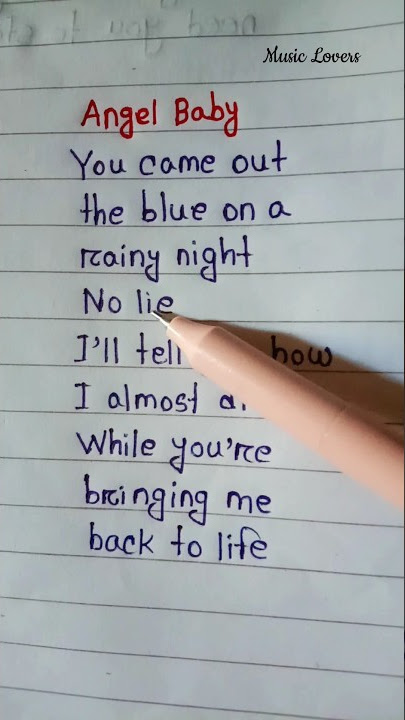 Music Lovers
Angel Baby
You came out
the blue on a
rainy night
No lie
I'll tell how
I almost
While you're
bringing me
back to life